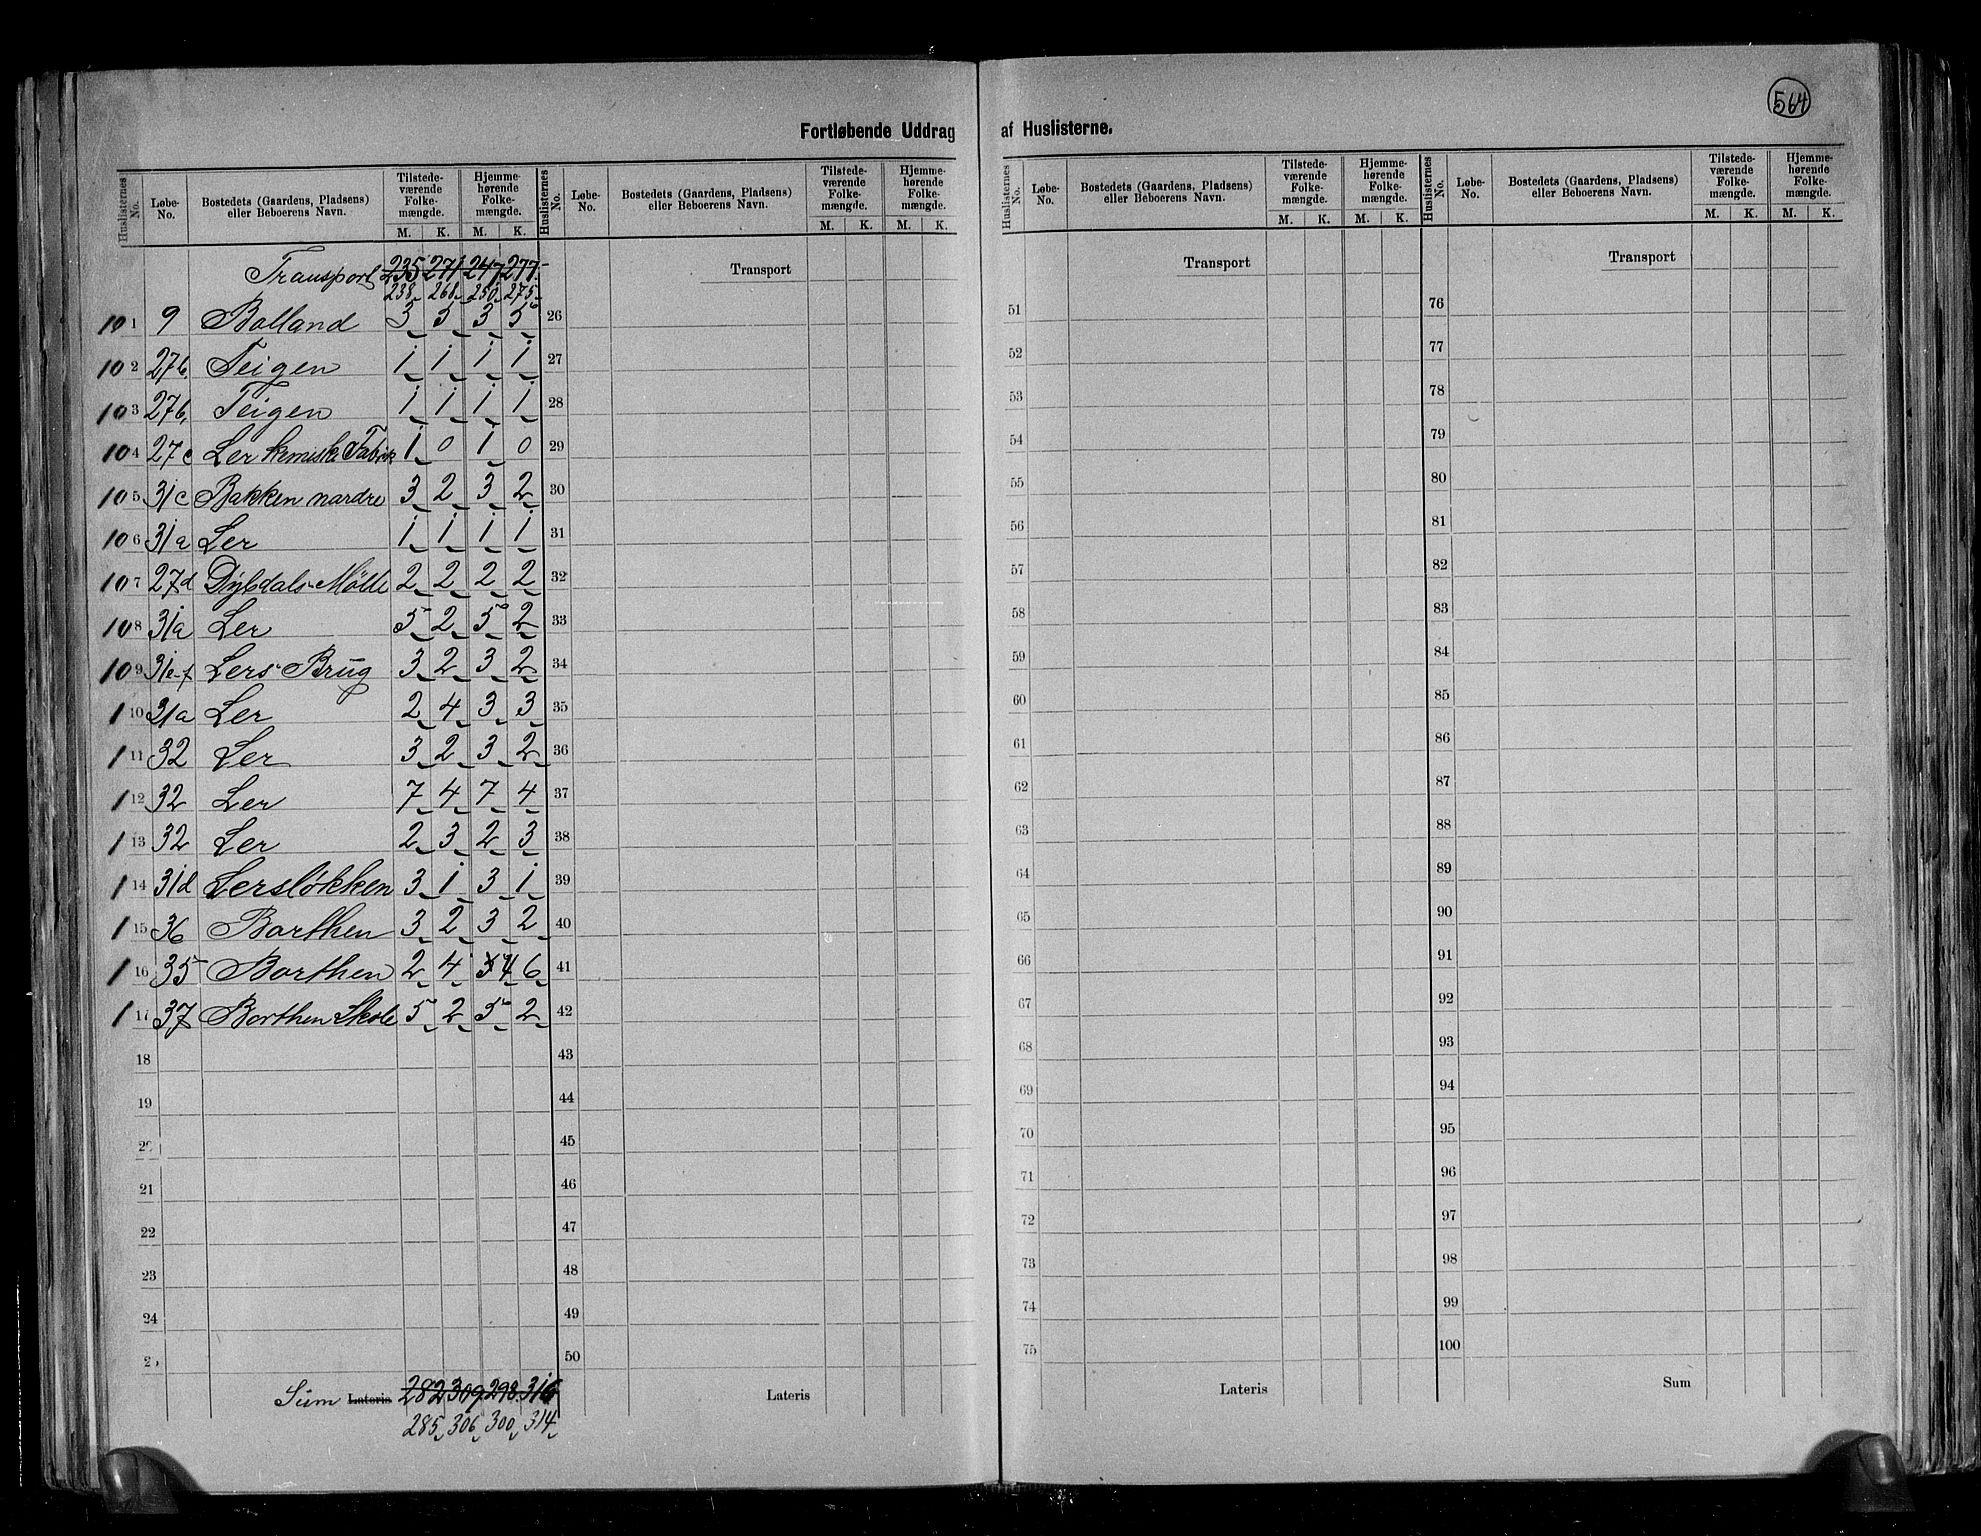 564
Fortløbende Uddrag af Huslisterne.
Huslisternes No. Løbe-No. Bostedets (Gaardens, Pladsen) eller Beboerens Navn. Tilstede-værende Folke-mængde. M. K. Hjemme-hørende Folke-mængde. M. K.
Transport 235 271 247 277
238 268 250 275
10 1 9 Bolland 3 5 3 5
10 2 27b. Teigen 1 1 1 1
10 3 27b, Teigen 1 1 1 1
10 4 27c Ler kemiske Fabrik 1 0 1 0
10 5 31c Bakken nardre 3 2 3 2
10 6 31a Ler 1 1 1 1
10 7 27d Dybdals Mölle 2 2 2 2
10 8 31a Ler 5 2 5 2
10 9 31e-f Lers Brug 3 2 3 2
1 10 31a Ler 2 4 3 3
1 11 32 Ler 3 2 3 2
1 12 32 Ler 7 4 7 4
1 13 32 Ler 2 3 2 3
1 14 31d Lersløkken 3 1 3 1
1 15 36 Borthen 3 2 3 2
1 16 35 Borthen 2 4 4 6
1 17 37 Borthen Skole 5 2 5 2
18
19
20
21
22
23
24
25
Sum Lateris 282 309 298 316
285 306 300 314
Huslisternes No. Løbe-No. Bostedets (Gaardens, Pladsen) eller Beboerens Navn. Tilstede-værende Folke-mængde. M. K. Hjemme-hørende Folke-mængde. M. K.
Transport
26
27
28
29
30
31
32
33
34
35
36
37
38
39
40
41
42
43
44
45
46
47
48
49
50
Lateris
Huslisternes No. Løbe-No. Bostedets (Gaardens, Pladsen) eller Beboerens Navn. Tilstede-værende Folke-mængde. M. K. Hjemme-hørende Folke-mængde. M. K.
Transport
51
52
53
54
55
56
57
58
59
60
61
62
63
64
65
66
67
68
69
70
71
72
73
74
75
Lateris
Huslisternes No. Løbe-No. Bostedets (Gaardens, Pladsen) eller Beboerens Navn. Tilstede-værende Folke-mængde. M. K. Hjemme-hørende Folke-mængde. M. K.
Transport
76
77
78
79
80
81
82
83
84
85
86
87
88
89
90
91
92
93
94
95
96
97
98
99
100
Sum